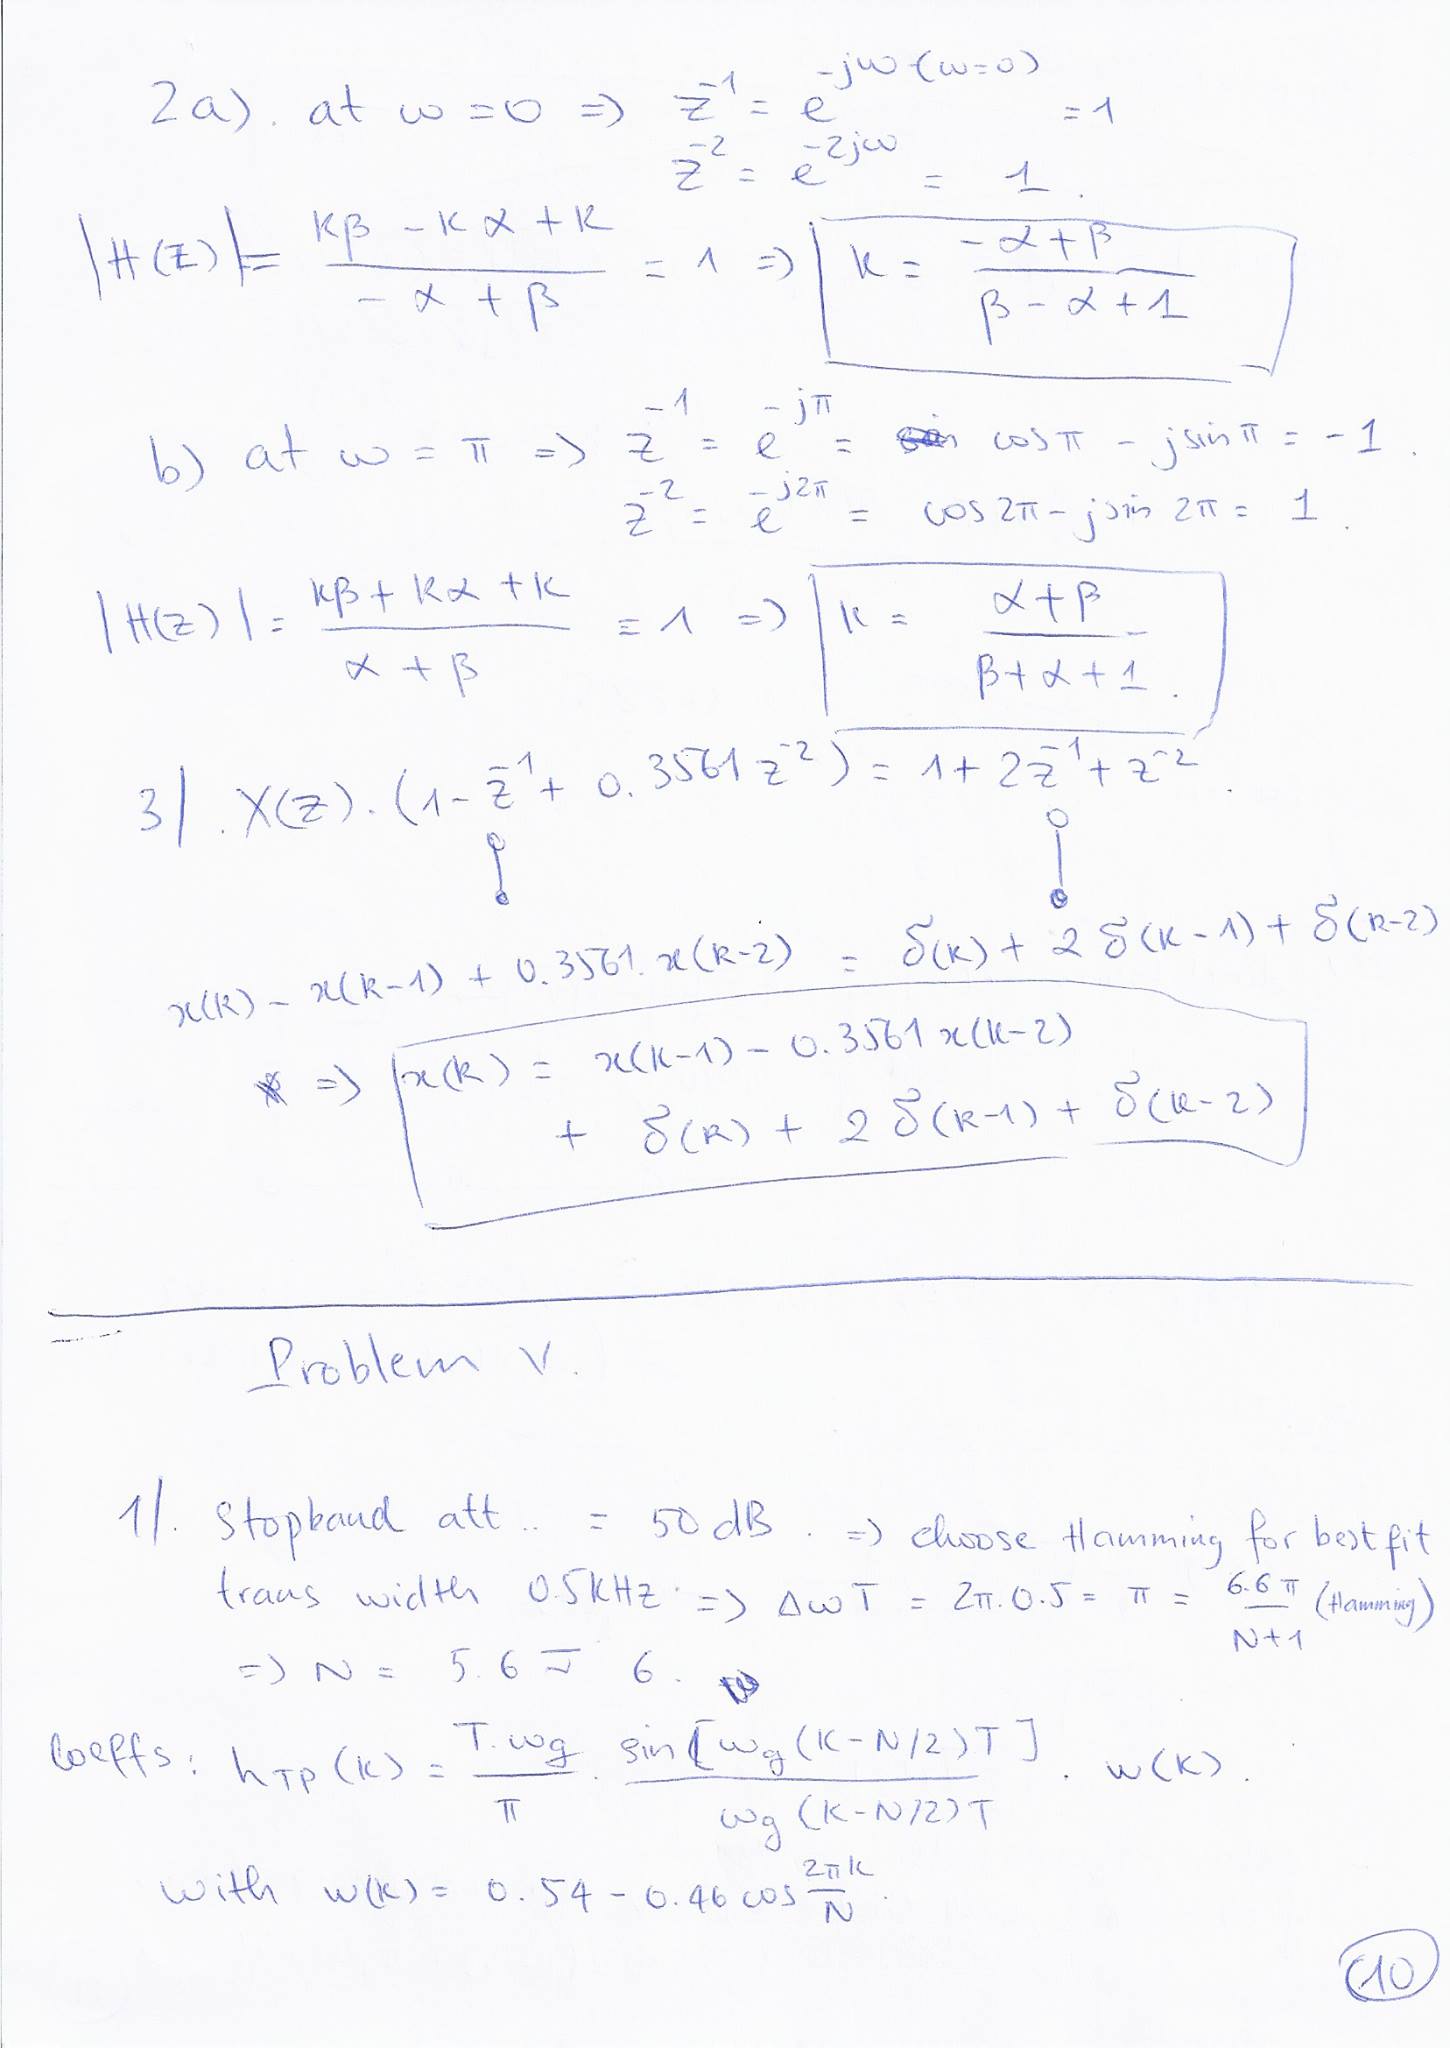 2a). at ω = 0 => z⁻¹ = e^(-jω (ω=0)) = 1
z⁻² = e^(-2jω) = 1.
|H(z)| = (Kβ - Kα + K) / (-α + β) = 1 => K = (-α + β) / (β - α + 1)
b) at ω = π => z⁻¹ = e^(-jπ) = cos π - j sin π = -1.
z⁻² = e^(-j2π) = cos 2π - j sin 2π = 1.
|H(z)| = (Kβ + Kα + K) / (α + β) = 1 => K = (α + β) / (β + α + 1).
3/. X(z). (1 - z⁻¹ + 0.3561 z⁻²) = 1 + 2z⁻¹ + z⁻².
x(k) - x(k-1) + 0.3561. x(k-2) = δ(k) + 2 δ(k-1) + δ(k-2)
=> x(k) = x(k-1) - 0.3561 x(k-2)
+ δ(k) + 2 δ(k-1) + δ(k-2)
Problem V.
1/. Stopband att.. = 50 dB. => choose Hamming for best fit
trans width 0.5kHz. => ΔωT = 2π.0.5 = π = 6.6π / (N+1) (Hamming)
=> N = 5.6 ≈ 6.
Coeffs: h_TP(k) = (T.ωg / π) . (sin[ωg(k-N/2)T] / (ωg(k-N/2)T)) . w(k).
with w(k) = 0.54 - 0.46 cos (2πk / N).
10